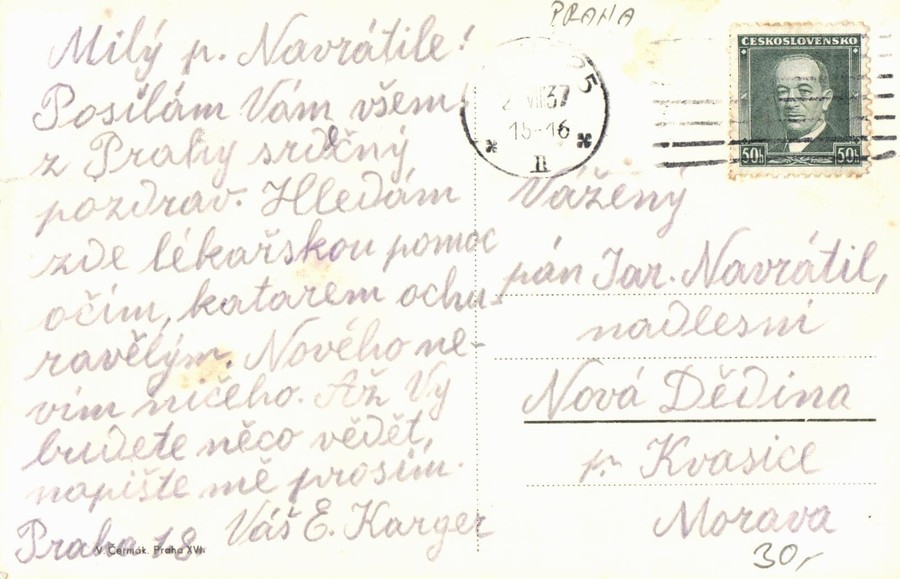 PRAHA
Milý p. Navrátile!
Posílám Vám všem
z Prahy srdečný
pozdrav. Hledám
zde lékařskou pomoc
očím, katarem ochu-
ravělým. Nového ne-
vím ničeho. Až Vy
budete něco vědět,
napište mě prosím.
Váš E. Karger
Praha 18
V. Čermák. Praha XVI.
VIII 37
15-16
II
ČESKOSLOVENSKO
50h 50h
Vážený
pán Jar. Navrátil,
nadlesní
Nová Dědina
p. Kvasice
Morava
30,-